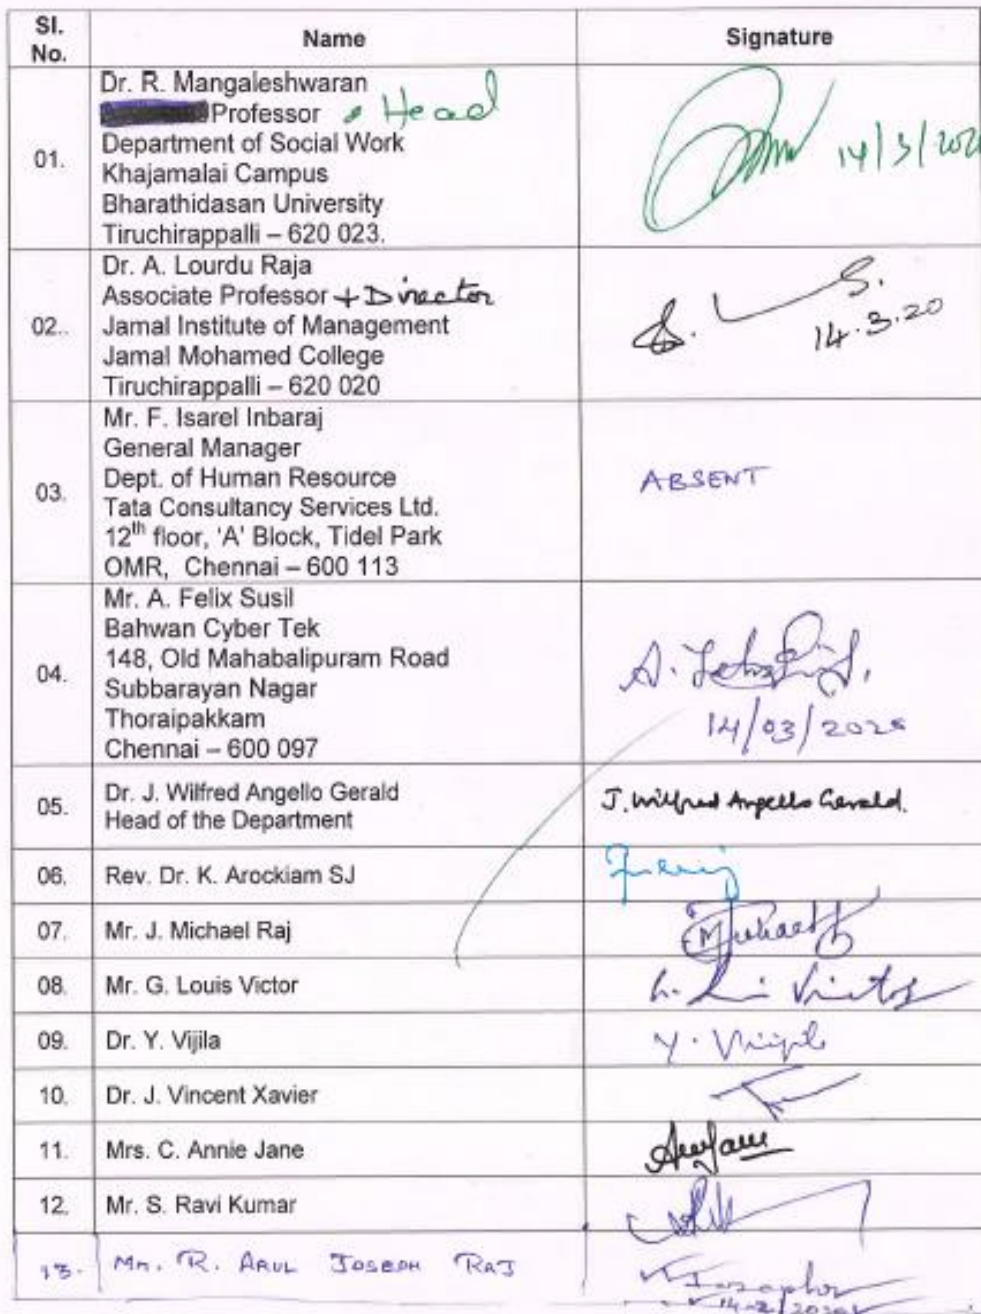 Sl. No. Name Signature
01. Dr. R. Mangaleshwaran
Professor & Head
Department of Social Work
Khajamalai Campus
Bharathidasan University
Tiruchirappalli – 620 023.
14/3/2020
02.. Dr. A. Lourdu Raja
Associate Professor + Director
Jamal Institute of Management
Jamal Mohamed College
Tiruchirappalli – 620 020
14.3.20
03. Mr. F. Isarel Inbaraj
General Manager
Dept. of Human Resource
Tata Consultancy Services Ltd.
12th floor, 'A' Block, Tidel Park
OMR, Chennai – 600 113
ABSENT
04. Mr. A. Felix Susil
Bahwan Cyber Tek
148, Old Mahabalipuram Road
Subbarayan Nagar
Thoraipakkam
Chennai – 600 097
14/03/2020
05. Dr. J. Wilfred Angello Gerald
Head of the Department
J. Wilfred Angello Gerald.
06. Rev. Dr. K. Arockiam SJ
07. Mr. J. Michael Raj
08. Mr. G. Louis Victor
09. Dr. Y. Vijila Y. Vijila
10. Dr. J. Vincent Xavier
11. Mrs. C. Annie Jane
12. Mr. S. Ravi Kumar
13. Mr. R. ARUL JOSEPH RAJ